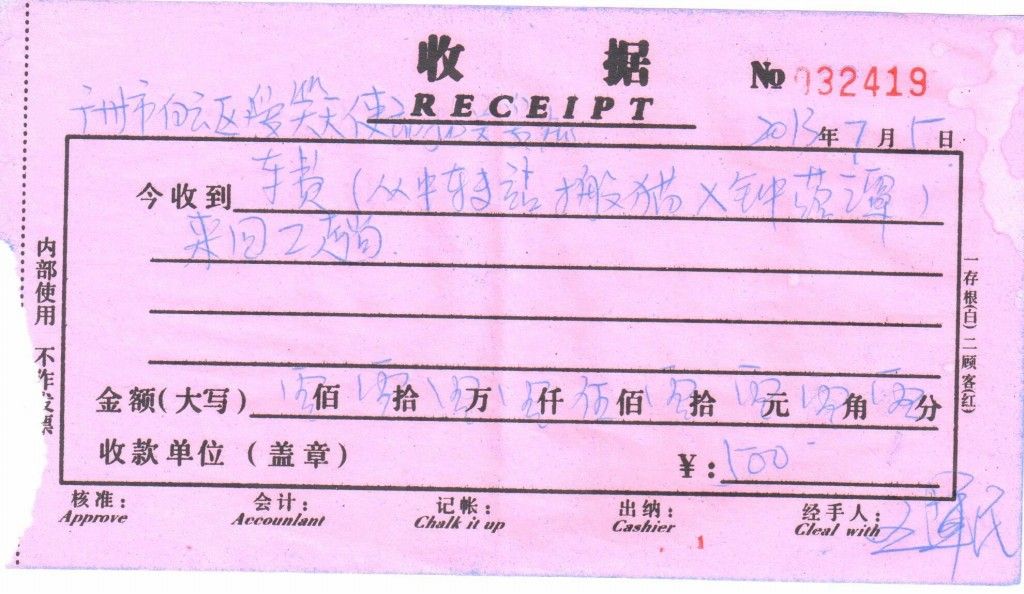 收 据
RECEIPT
No 032419
广州市白云区受笑天使动物
2013年7月15日
今收到 车费(从中转站搬猫入钟落潭)
来回2趟
金额(大写) 零佰零拾零万零仟伍佰零拾零元零角零分
收款单位(盖章) ¥:500
核准: 会计: 记帐: 出纳: 经手人:
Approve Accounlant Chalk it up Cashier Cleal with
内部使用 不作发票
一存根(白)二顾客(红)
1